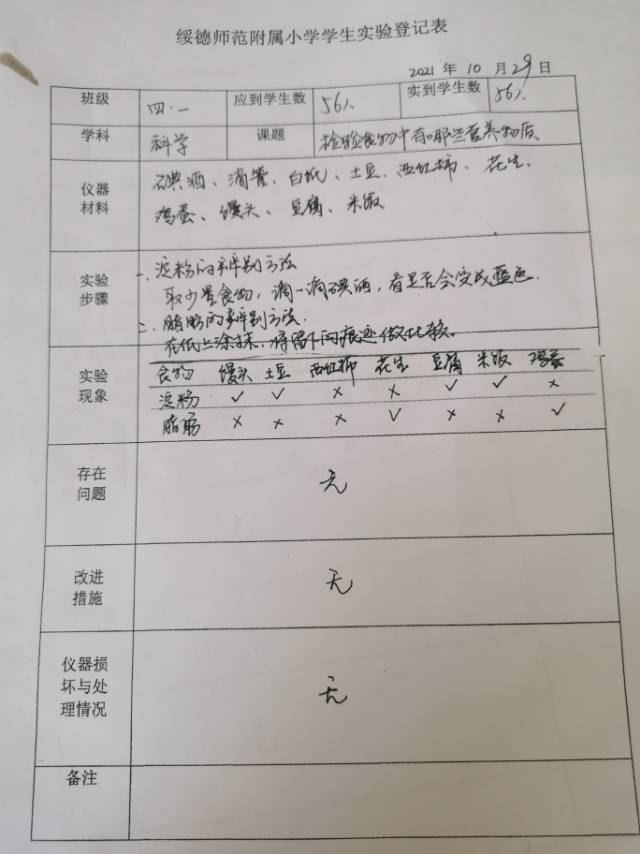 绥德师范附属小学学生实验登记表
2021 年 10 月 29 日
班级 四.一 应到学生数 56人 实到学生数 56人
学科 科学 课题 检验食物中有哪些营养物质
仪器材料 碘酒、滴管、白纸、土豆、西红柿、花生、
鸡蛋、馒头、豆腐、米饭
实验步骤 一.淀粉的辨别方法
取少量食物,滴一滴碘酒,看是否会变成蓝色.
二.脂肪的辨别方法.
在纸上涂抹,将留下的痕迹做比较。
实验现象 食物 馒头 土豆 西红柿 花生 豆腐 米饭 鸡蛋
淀粉 ✓ ✓ × × ✓ ✓ ×
脂肪 × × × ✓ × × ✓
存在问题 无
改进措施 无
仪器损坏与处理情况 无
备注